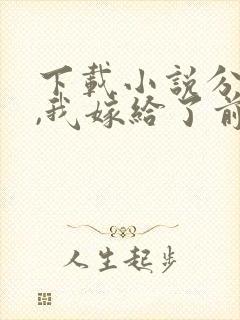 下載小說分
,我嫁給了前
人生起步